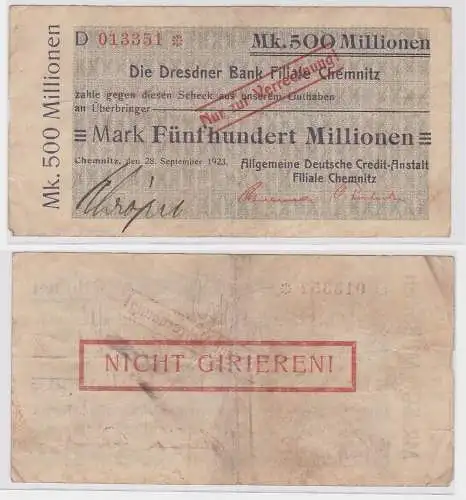 Mk. 500 Millionen
D 013351 *
Mk. 500 Millionen
Die Dresdner Bank Filiale Chemnitz
zahle gegen diesen Scheck aus unserem Guthaben
an Überbringer
Nur zur Verrechnung!
Mark Fünfhundert Millionen
Chemnitz, den 28. September 1923.
Allgemeine Deutsche Credit-Anstalt
Filiale Chemnitz
NICHT GIRIEREN!